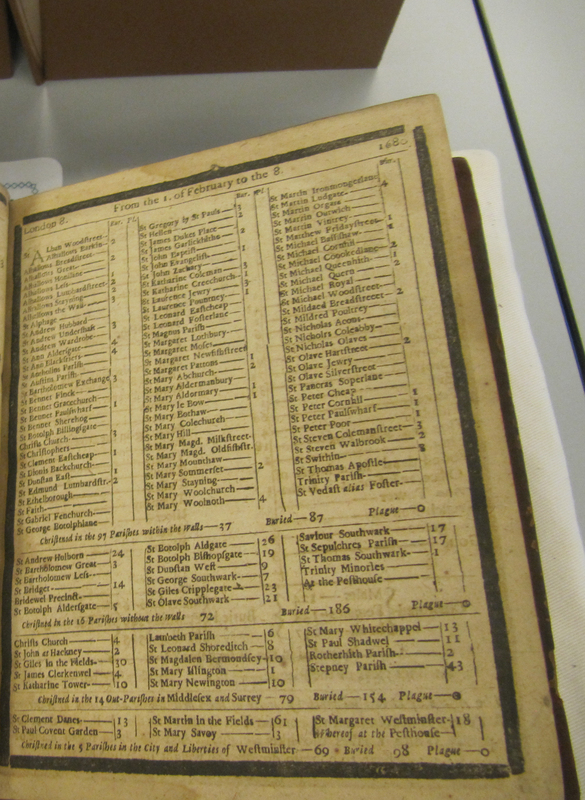 London 8. From the 1. of February to the 8. 1680
Bur. Pl.
St Alban Woodstreet
Alhallows Barkin 2
Alhallows Breadstreet
Alhallows Great 2
Alhallows Honilane
Alhallows Less 1
Alhallows Lumbardstreet 2
Alhallows Stayning
Alhallows the Wall 3
St Alphage
St Andrew Hubbard
St Andrew Undershaft 3
St Andrew Wardrobe
St Ann Aldersgate 4
St Ann Blackfriers 4
St Antholins Parish
St Austins Parish
St Bartholomew Exchange 3
St Bennet Finck
St Bennet Gracechurch 1
St Bennet Paulswharf 1
St Bennet Sherehog
St Botolph Billingsgate
Christs Church 3
St Christophers
St Clement Eastcheap 1
St Dionis Backchurch
St Dunstan East 1
St Edmund Lumbardstr. 2
St Ethelborough
St Faith
St Gabriel Fenchurch
St George Botolphlane
Bur. Pl.
St Gregory by St Pauls 3
St Hellen 2
St James Dukes Place
St James Garlickhithe
St John Baptist 1
St John Evangelist
St John Zachary
St Katharine Coleman 3
St Katharine Creechurch 1
St Laurence Jewry 3
St Laurence Pountney 1
St Leonard Eastcheap
St Leonard Fosterlane
St Magnus Parish
St Margaret Lothbury
St Margaret Moses
St Margaret Newfishstreet 1
St Margaret Pattons 2
St Mary Abchurch
St Mary Aldermanbury 1
St Mary Aldermary 1
St Mary le Bow
St Mary Bothaw
St Mary Colechurch
St Mary Hill
St Mary Magd. Milkstreet
St Mary Magd. Oldfishstr.
St Mary Mounthaw
St Mary Sommerset 2
St Mary Stayning
St Mary Woolchurch
St Mary Woolnoth 4
Bur.
St Martin Ironmongerlane
St Martin Ludgate 4
St Martin Orgars
St Martin Outwich
St Martin Vintrey
St Matthew Fridaystreet 1
St Michael Bassishaw
St Michael Cornhil
St Michael Crookedlane 2
St Michael Queenhith 1
St Michael Quern
St Michael Royal
St Michael Woodstreet
St Mildred Breadstreet 2
St Mildred Poultrey
St Nicholas Acons
St Nicholas Coleabby
St Nicholas Olaves
St Olave Hartstreet 2
St Olave Jewry
St Olave Silverstreet
St Pancras Soperlane
St Peter Cheap
St Peter Cornhil 1
St Peter Paulswharf 1
St Peter Poor
St Steven Colemanstreet 3
St Steven Walbrook 2
St Swithin
St Thomas Apostle
Trinity Parish
St Vedast alias Foster
Christned in the 97 Parishes within the Walls—37 Buried—87 Plague—0
St Andrew Holborn 24
St Bartholomew Great 3
St Bartholomew Less
St Bridget 14
Bridewel Precinct
St Botolph Aldersgate 5
St Botolph Aldgate 26
St Botolph Bishopsgate 19
St Dunstan West 9
St George Southwark 7
St Giles Cripplegate 23
St Olave Southwark 21
Saviour Southwark 17
St Sepulchres Parish 17
St Thomas Southwark 1
Trinity Minories
At the Pesthouse
Christned in the 16 Parishes without the Walls 72 Buried—186 Plague—0
Christs Church 4
St John at Hackney 2
St Giles in the Fields 30
St James Clerkenwel 4
St Katharine Tower 10
Lambeth Parish 6
St Leonard Shoreditch 8
St Magdalen Bermondsey 10
St Mary Islington 1
St Mary Newington 10
St Mary Whitechappel 13
St Paul Shadwel 11
Rotherhith Parish 2
Stepney Parish 43
Christned in the 14 Out-Parishes in Middlesex and Surrey — 79 Buried—154 Plague—0
St Clement Danes 13
St Paul Covent Garden 3
St Martin in the Fields 61
St Mary Savoy 3
St Margaret Westminster 18
Whereof at the Pesthouse
Christned in the 5 Parishes in the City and Liberties of Westminster — 69 Buried 98 Plague—0